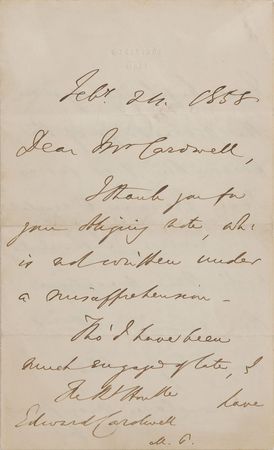 Feby. 24. 1858
Dear Mr Cardwell,
I thank you for
your obliging note, wh:
is not written under
a misapprehension –
Tho' I have been
much engaged of late, I
have
The Rt Honble
Edward Cardwell
M. P.